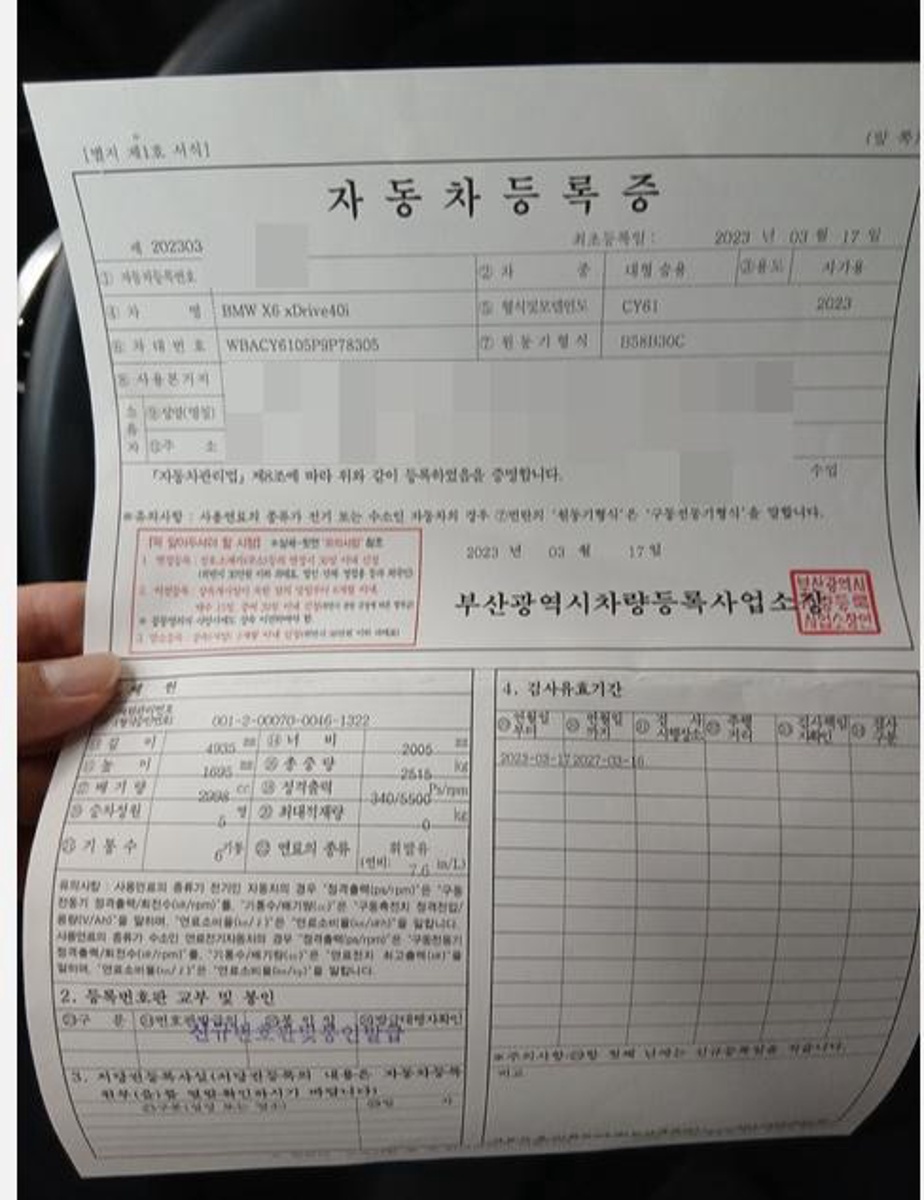 [별지 제1호 서식]
(앞 쪽
자동차등록증
제 202303
최초등록일 : 2023 년 03 월 17 일
① 자동차등록번호 ② 차 종 대형 승용 ③용도 자가용
④ 차 명 BMW X6 xDrive40i ⑤ 형식및모델연도 CY61 2023
⑥ 차 대 번 호 WBACY6105P9P78305 ⑦ 원 동 기 형 식 B58B30C
⑧ 사 용 본 거 지
소유자 ⑨성명(명칭)
주 소
「자동차관리법」 제8조에 따라 위와 같이 등록하였음을 증명합니다.
수입
※유의사항 : 사용연료의 종류가 전기 또는 수소인 자동차의 경우 ⑦번란의 '원동기형식'은 '구동전동기형식'을 말합니다.
[꼭 알아두셔야 할 사항]
2023 년 03 월 17일
부산광역시차량등록사업소장
부산광역시
차량등록
사업소장인
제 원
001-2-00070-0046-1322
길 이 4935 mm 너 비 2005 mm
높 이 1695 mm 총 중 량 2515 kg
배 기 량 2998 cc 정격출력 340/5500 Ps/rpm
승차정원 5 명 최대적재량 0 kg
기 통 수 6기통 연료의 종류 휘발유
(연비: 7.6 m/L)
유의사항 : 사용연료의 종류가 전기인 자동차의 경우 "정격출력(ps/rpm)"은 "구동
전동기 정격출력/회전수(㎾/rpm)"를, "기통수/배기량(cc)"은 "구동축전지 정격전압/
용량(V/Ah)"을 말하며, "연료소비율(㎞/ℓ)"은 "연료소비율(㎞/㎾h)"을 말합니다.
사용연료의 종류가 수소인 연료전지자동차의 경우 "정격출력(ps/rpm)"은 "구동전동기
정격출력/회전수(㎾/rpm)"를, "기통수/배기량(cc)"은 "연료전지 최고출력(㎾)"을
말하며, "연료소비율(㎞/ℓ)"은 "연료소비율(㎞/㎏)"을 말합니다.
2. 등록번호판 교부 및 봉인
구 분 번호판발급일 봉 인 일 발급대행자확인
신규번호판및봉인발급
3. 저당권등록사실(저당권등록의 내용은 자동차등록
원부(을)를 열람·확인하시기 바랍니다)
구분(설정 또는 말소) 일 자
4. 검사유효기간
연월일부터 연월일까지 검사시행장소 주행거리 검사책임자확인 검사구분
2023-03-17 2027-03-16
비고